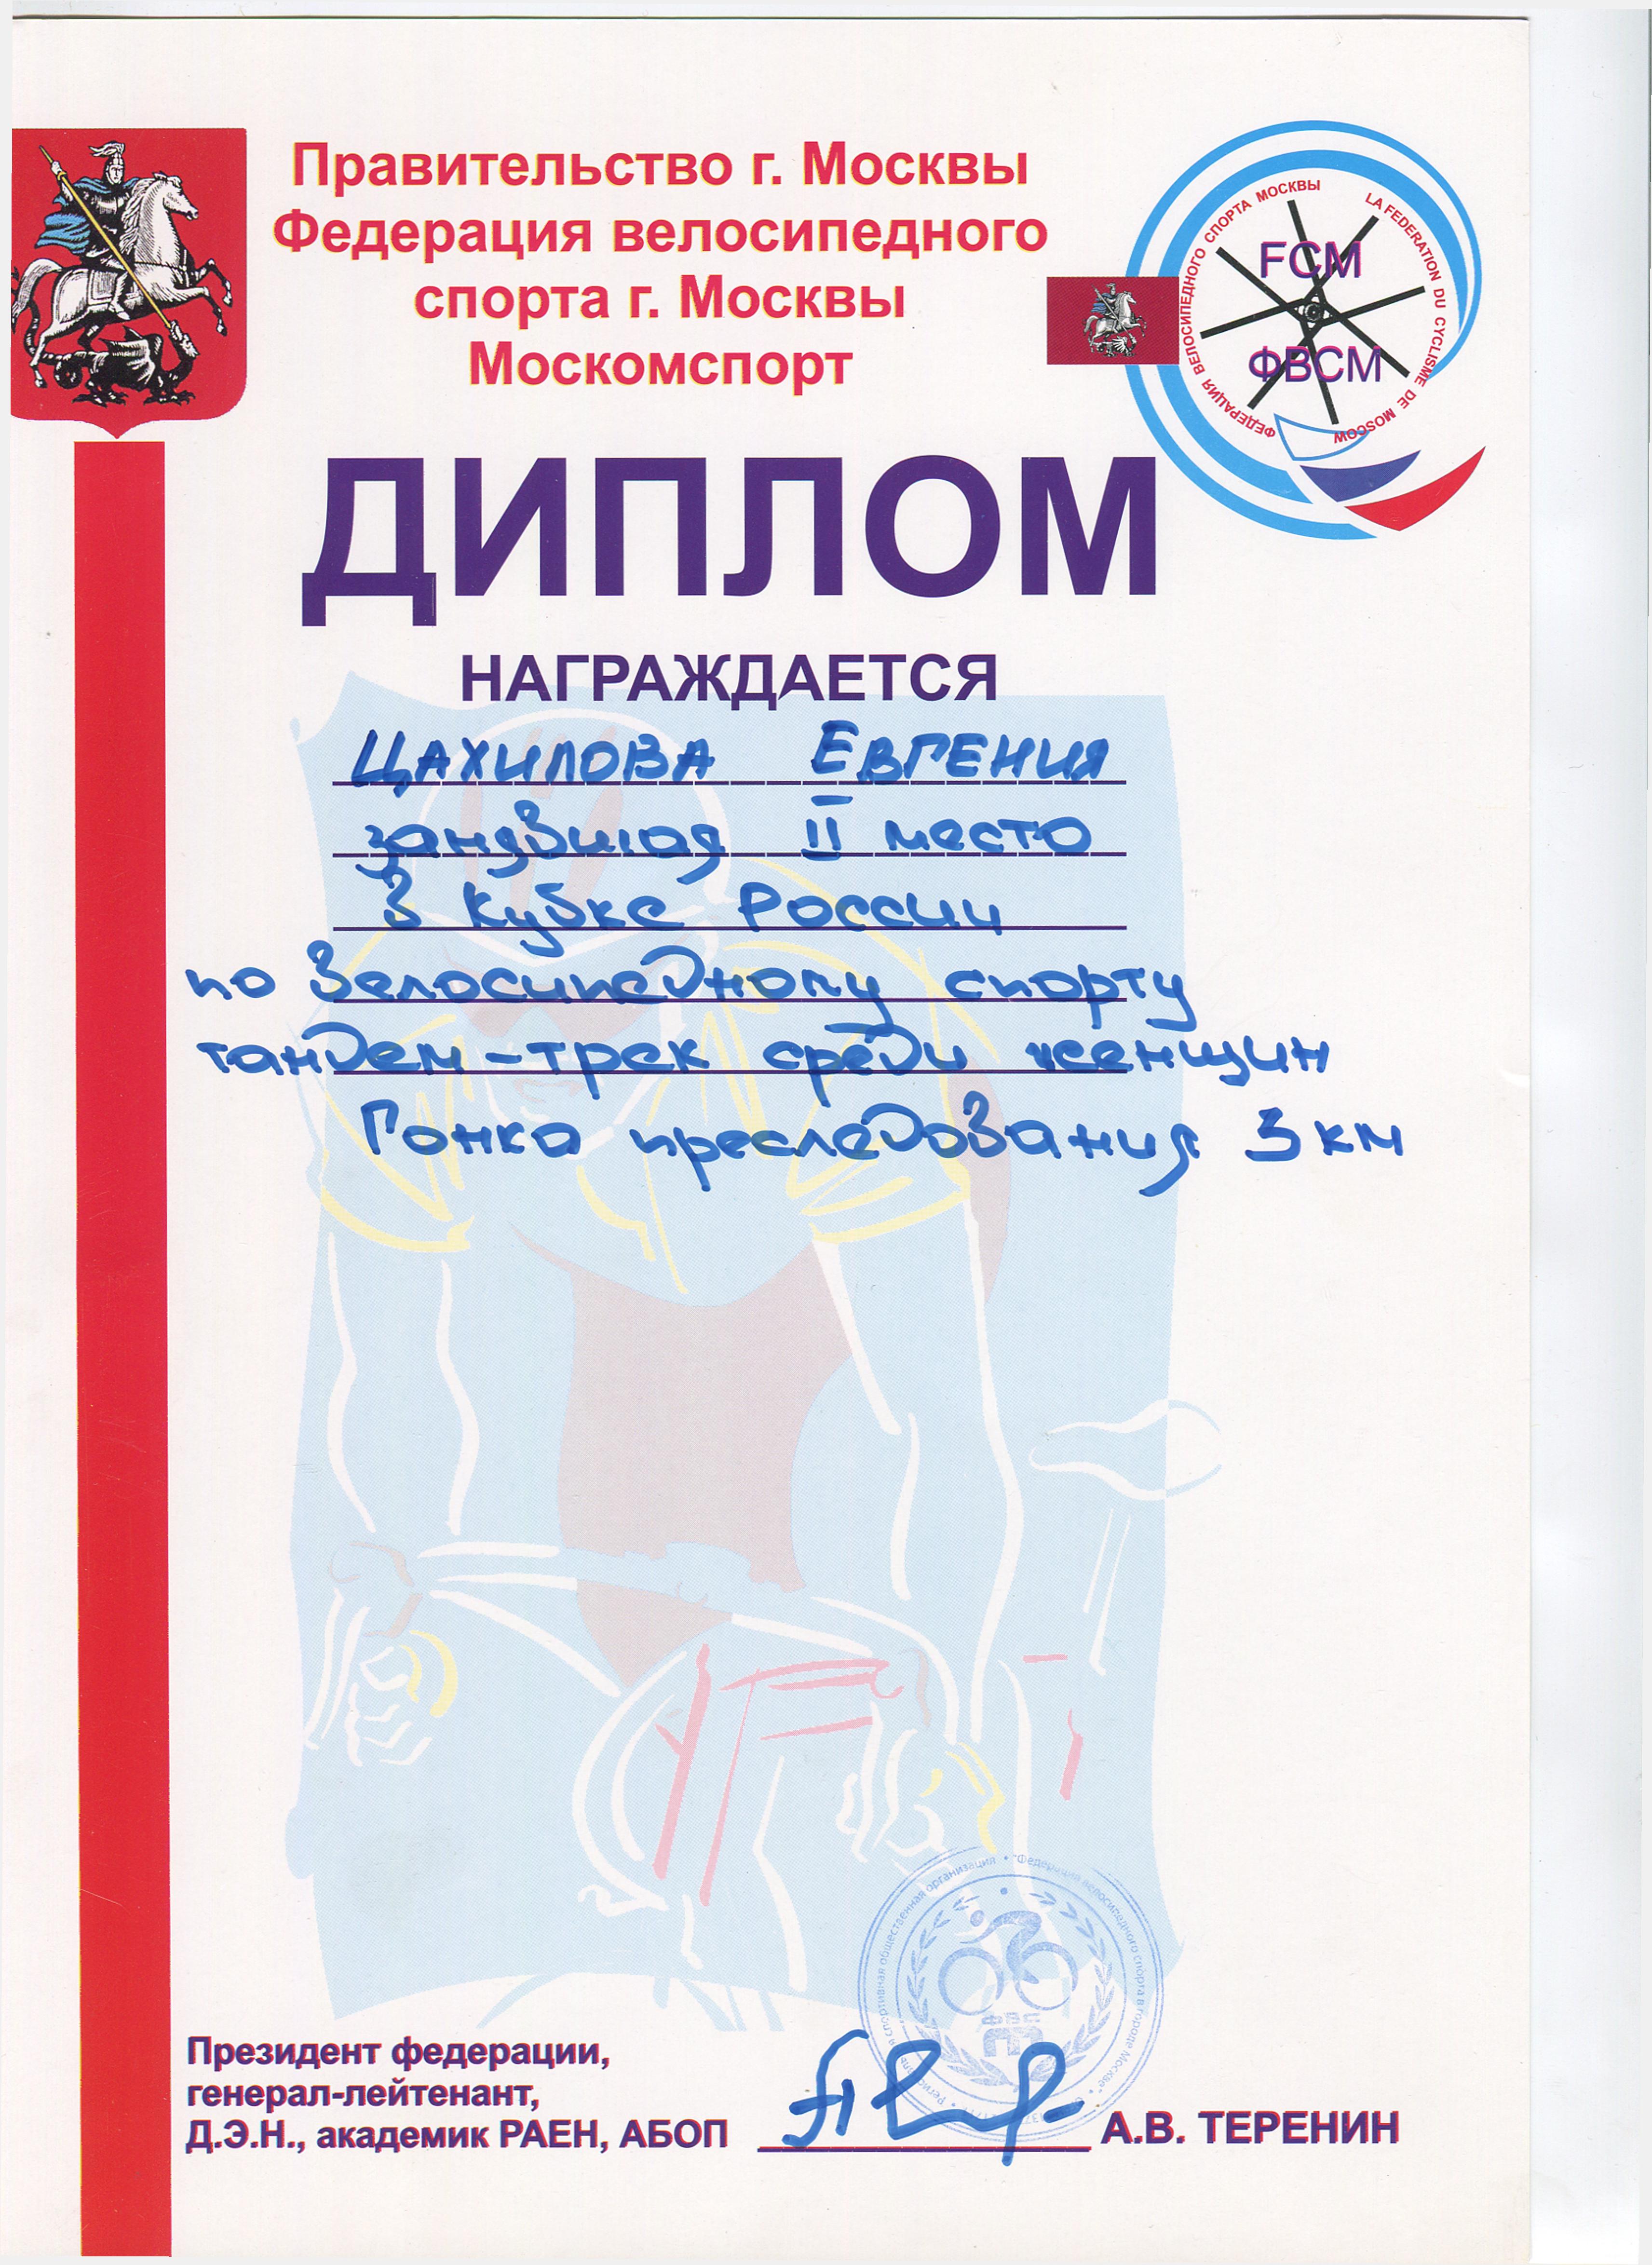 Правительство г. Москвы
Федерация велосипедного
спорта г. Москвы
Москомспорт
ФЕДЕРАЦИЯ ВЕЛОСИПЕДНОГО СПОРТА МОСКВЫ
LA FEDERATION DU CYCLISME DE MOSCOW
FCM
ФВСМ
ДИПЛОМ
НАГРАЖДАЕТСЯ
ЦАХИЛОВА ЕВГЕНИЯ
занявшая II место
в Кубке России
по велосипедному спорту
тандем-трек среди женщин
Гонка преследования 3 км
спортивная общественная организация • "Федерация велосипедного спорта в городе Москве" •
ФВС
М
Президент федерации,
генерал-лейтенант,
Д.Э.Н., академик РАЕН, АБОП
А.В. ТЕРЕНИН